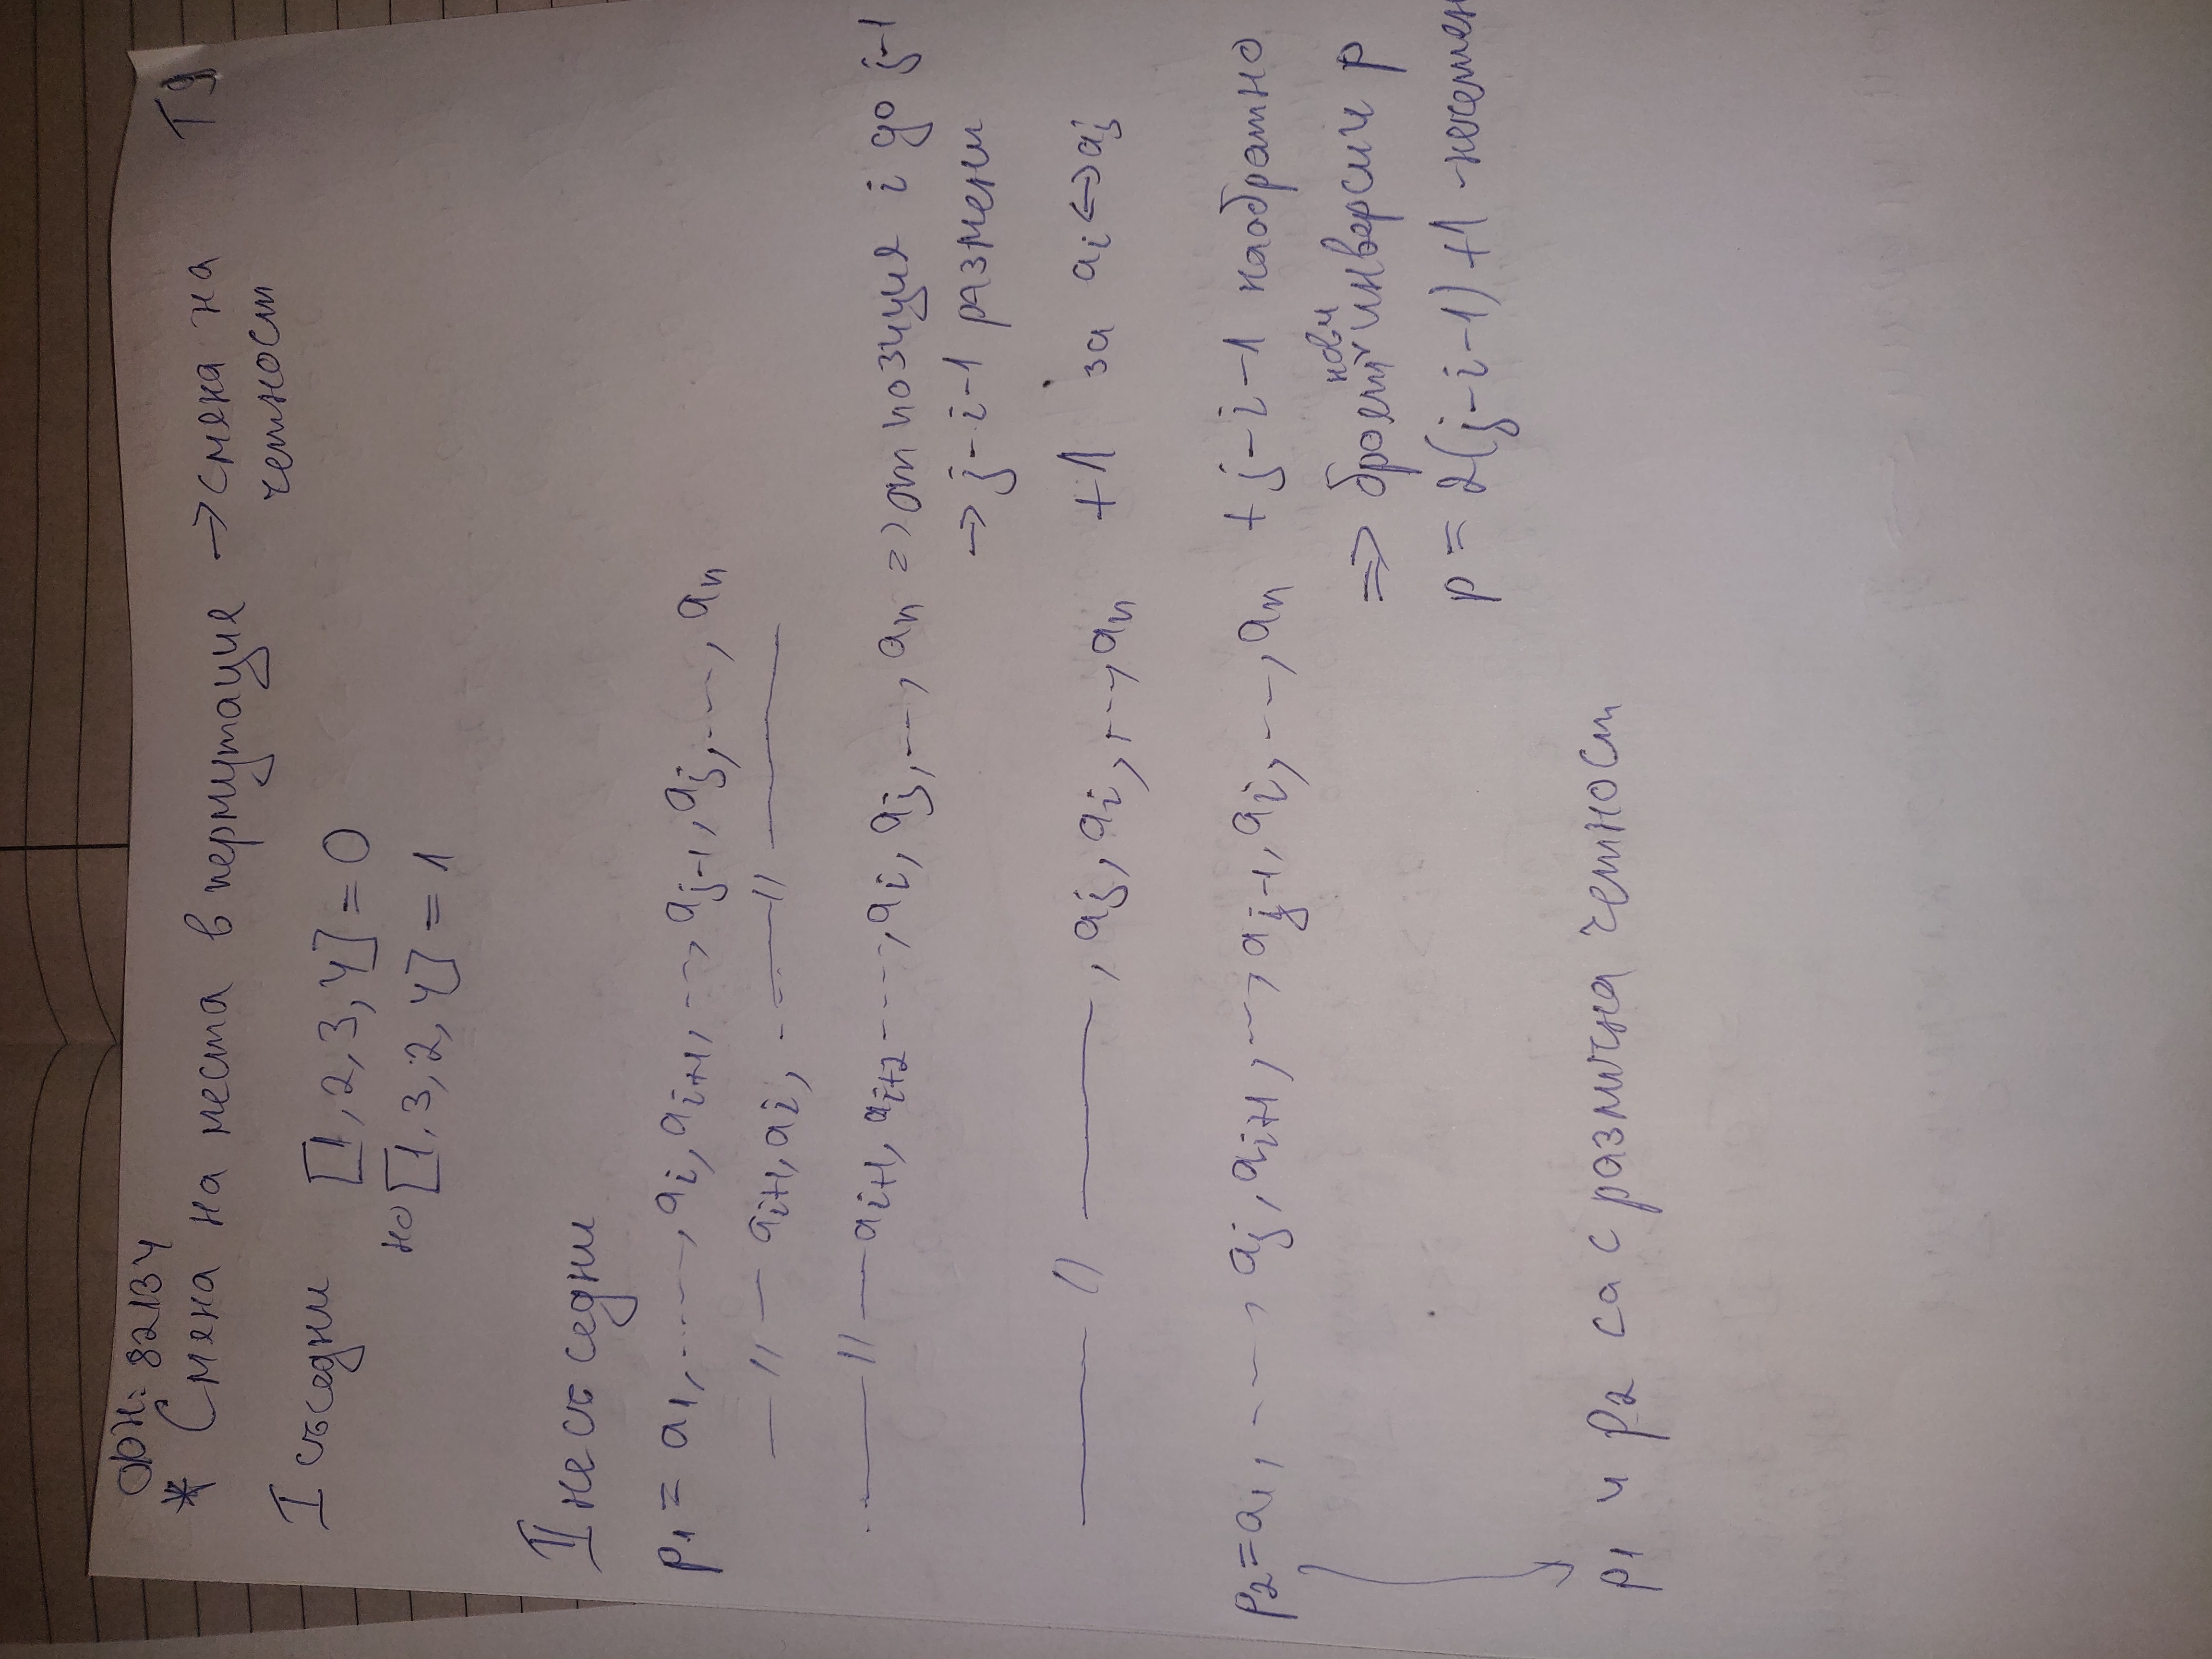 ФН: 82134
* Смяна на места в пермутация → смяна на T9
четност
I съседни [1, 2, 3, 4] = 0
но [1, 3, 2, 4] = 1
II несъседни
p₁ = a₁, ......, aᵢ, aᵢ₊₁, ..., aⱼ₋₁, aⱼ, ...., aₙ
— // — aᵢ₊₁, aᵢ, ... — // —
— // — aᵢ₊₁, aᵢ₊₂ ...., aᵢ, aⱼ, ..., aₙ => от позиция i до j-1
→ j-i-1 размени
— // —, aⱼ, aᵢ, ..., aₙ +1 за aᵢ ↔ aⱼ
p₂ = a₁, ...., aⱼ, aᵢ₊₁, ..., aⱼ₋₁, aᵢ, ..., aₙ + j-i-1 наобратно
=> броят нови инверсии p
p = 2(j-i-1) +1 - нечетен
p₁ и p₂ са с различна четност